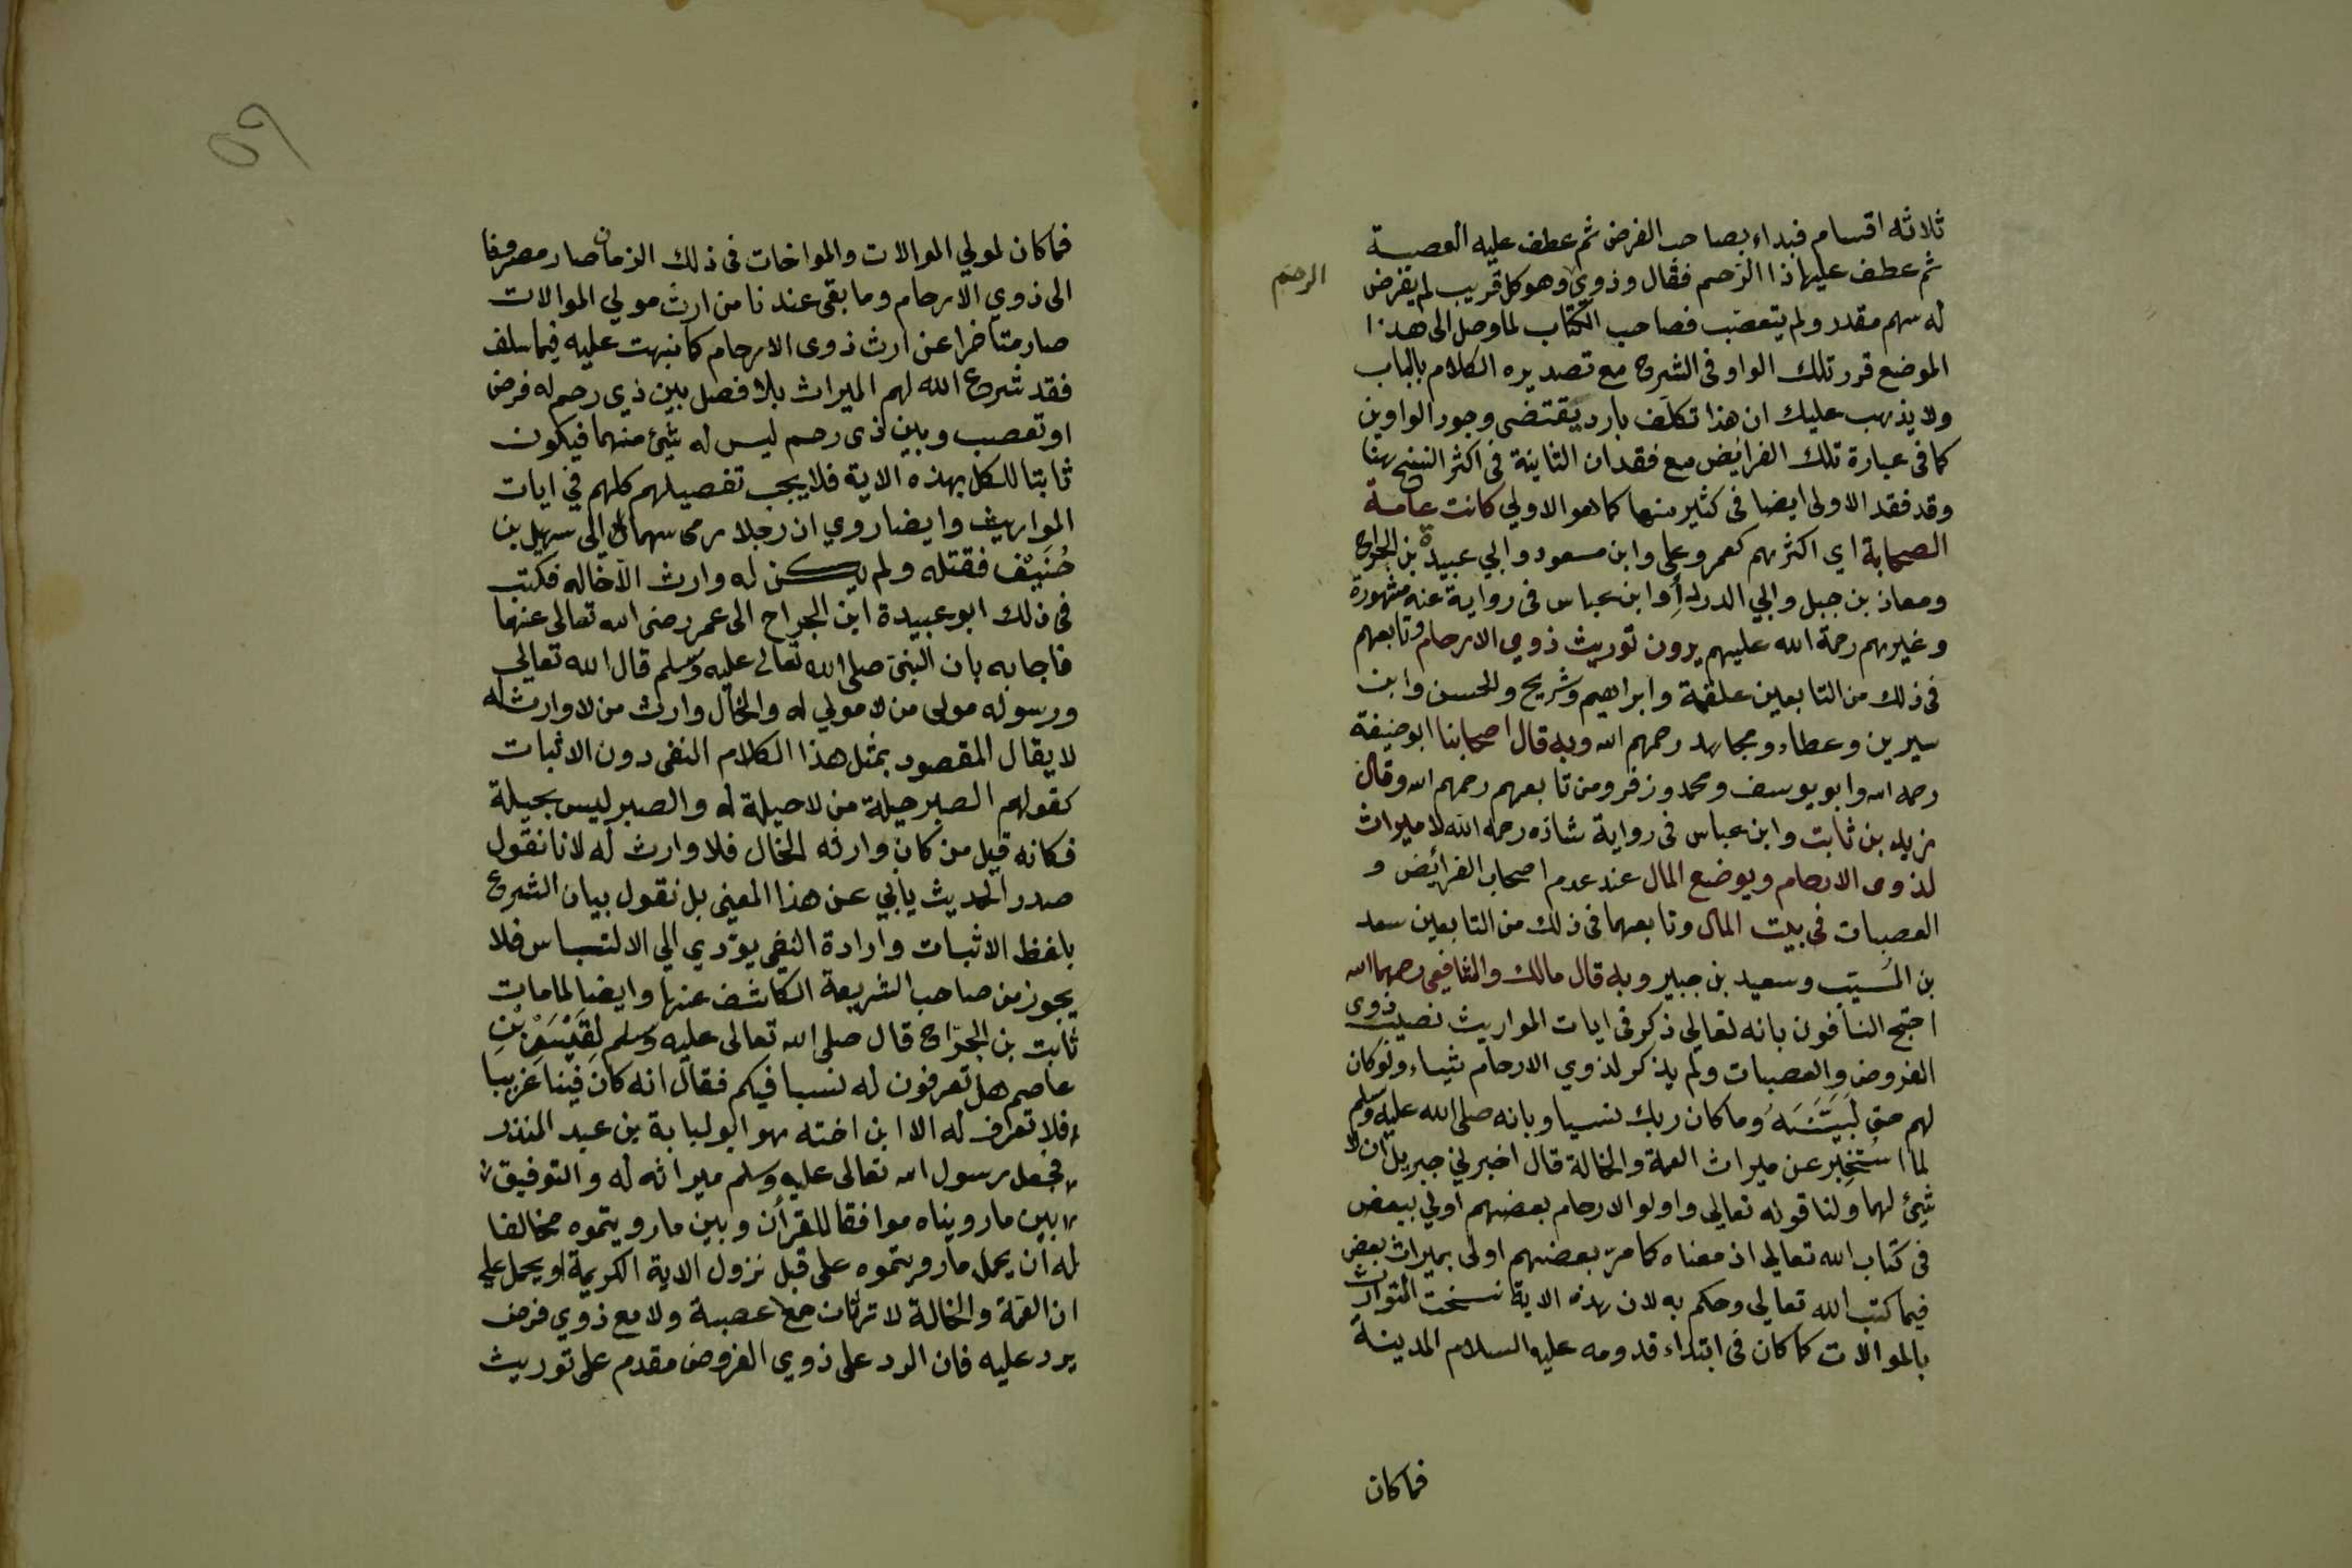 ثلاثه اقسام فبداء بصاحب الفرض ثم عطف عليه العصبة
ثم عطف عليها ذا الرحم فقال وذوي وهو كل قريب لم يفرض
الرحم
له سهم مقدر ولم يتعصب فصاحب الكتاب لما وصل الى هذا
الموضع قرر تلك الواو في الشرح مع تصديره الكلام بالباب
ولا يذهب عليك ان هذا تكلف بارد يقتضى وجود الواوين
كما فى عبارة تلك الفرايض مع فقدان الثانية فى اكثر النسخ هنا
وقد فقد الاولى ايضا فى كثير منها كما هو الاولي كانت عامة
الصحابة اي اكثرهم كعمر وعلى وابن مسعود وابي عبيدة بن الجراح
ومعاذ بن جبل وابي الدرداء وابن عباس فى رواية عنه مشهورة
وغيرهم رحمة الله عليهم يرون توريث ذوي الارحام وتابعهم
فى ذلك من التابعين علقمة وابراهيم وشريح والحسن وابن
سيرين وعطاء ومجاهد رحمهم الله وبه قال اصحابنا ابو حنيفة
رحمه الله وابو يوسف ومحمد وزفر ومن تابعهم رحمهم الله وقال
زيد بن ثابت وابن عباس فى رواية شاذه رحمه الله لا ميراث
لذوى الارحام ويوضع المال عند عدم اصحاب الفرائض و
العصبات فى بيت المال وتابعهما فى ذلك من التابعين سعد
بن المسيب وسعيد بن جبير وبه قال مالك والشافعي رحمهما الله
احتج النافون بانه تعالي ذكر فى ايات المواريث نصيب ذوى
الفروض والعصبات ولم يذكر لذوي الارحام شياء ولو كان
لهم حق لبينه وما كان ربك نسيا وبانه صلى الله عليه وسلم
لما استخبر عن ميراث العمة والخالة قال اخبرني جبريل ان لا
شيئ لهما ولنا قوله تعالى واولو الارحام بعضهم اولي ببعض
فى كتاب الله تعالى اذ معناه كما مر بعضهم اولى بميراث بعض
فيما كتب الله تعالى وحكم به لان هذه الاية نسخت التوارث
بالموالات كما كان فى ابتداء قدومه عليه السلام المدينة
فما كان
٥٩
فما كان لمولي الموالات والمواخات فى ذلك الزمان صار مصروفا
الى ذوي الارحام وما بقى عندنا من ارث مولي الموالات
صار متاخرا عن ارث ذوى الارحام كما نبهت عليه فيما سلف
فقد شرع الله لهم الميراث بلا فصل بين ذي رحم له فرض
او تعصب وبين ذى رحم ليس له شيئ منهما فيكون
ثابتا للكل بهذه الاية فلا يجب تفصيلهم كلهم في ايات
المواريث وايضا روي ان رجلا رمى سهما الى سهيل بن
حنيف فقتله ولم يكن له وارث الا خاله فكتب
فى ذلك ابو عبيدة ابن الجراح الى عمر رضى الله تعالى عنهما
فاجابه بان النبي صلى الله تعالى عليه وسلم قال الله تعالي
ورسوله مولى من لا مولي له والخال وارث من لا وارث له
لا يقال المقصود بمثل هذا الكلام النفى دون الاثبات
كقولهم الصبر حيلة من لا حيلة له والصبر ليس بحيلة
فكانه قيل من كان وارثه الخال فلا وارث له لانا نقول
صدر الحديث يأبي عن هذا المعنى بل نقول بيان الشرع
بلفظ الاثبات وارادة النفى يؤدي الي الالتباس فلا
يجوز من صاحب الشريعة الكاشف عنها وايضا لما مات
ثابت بن الجراح قال صلى الله تعالى عليه وسلم لقيس بن
عاصم هل تعرفون له نسبا فيكم فقال انه كان فينا غريبا
فلا تعرف له الا ابن اخته هو ابو لبابة بن عبد المنذر
فجعل رسول الله تعالى عليه وسلم ميراثه له والتوفيق
بين ما رويناه موافقا للقرأن وبين ما رويتموه مخالفا
له ان يحمل ما رويتموه على قبل نزول الاية الكريمة او يحمل علي
ان العمة والخالة لا ترثان مع عصبة ولا مع ذوي فرض
يرد عليه فان الرد على ذوي الفروض مقدم على توريث